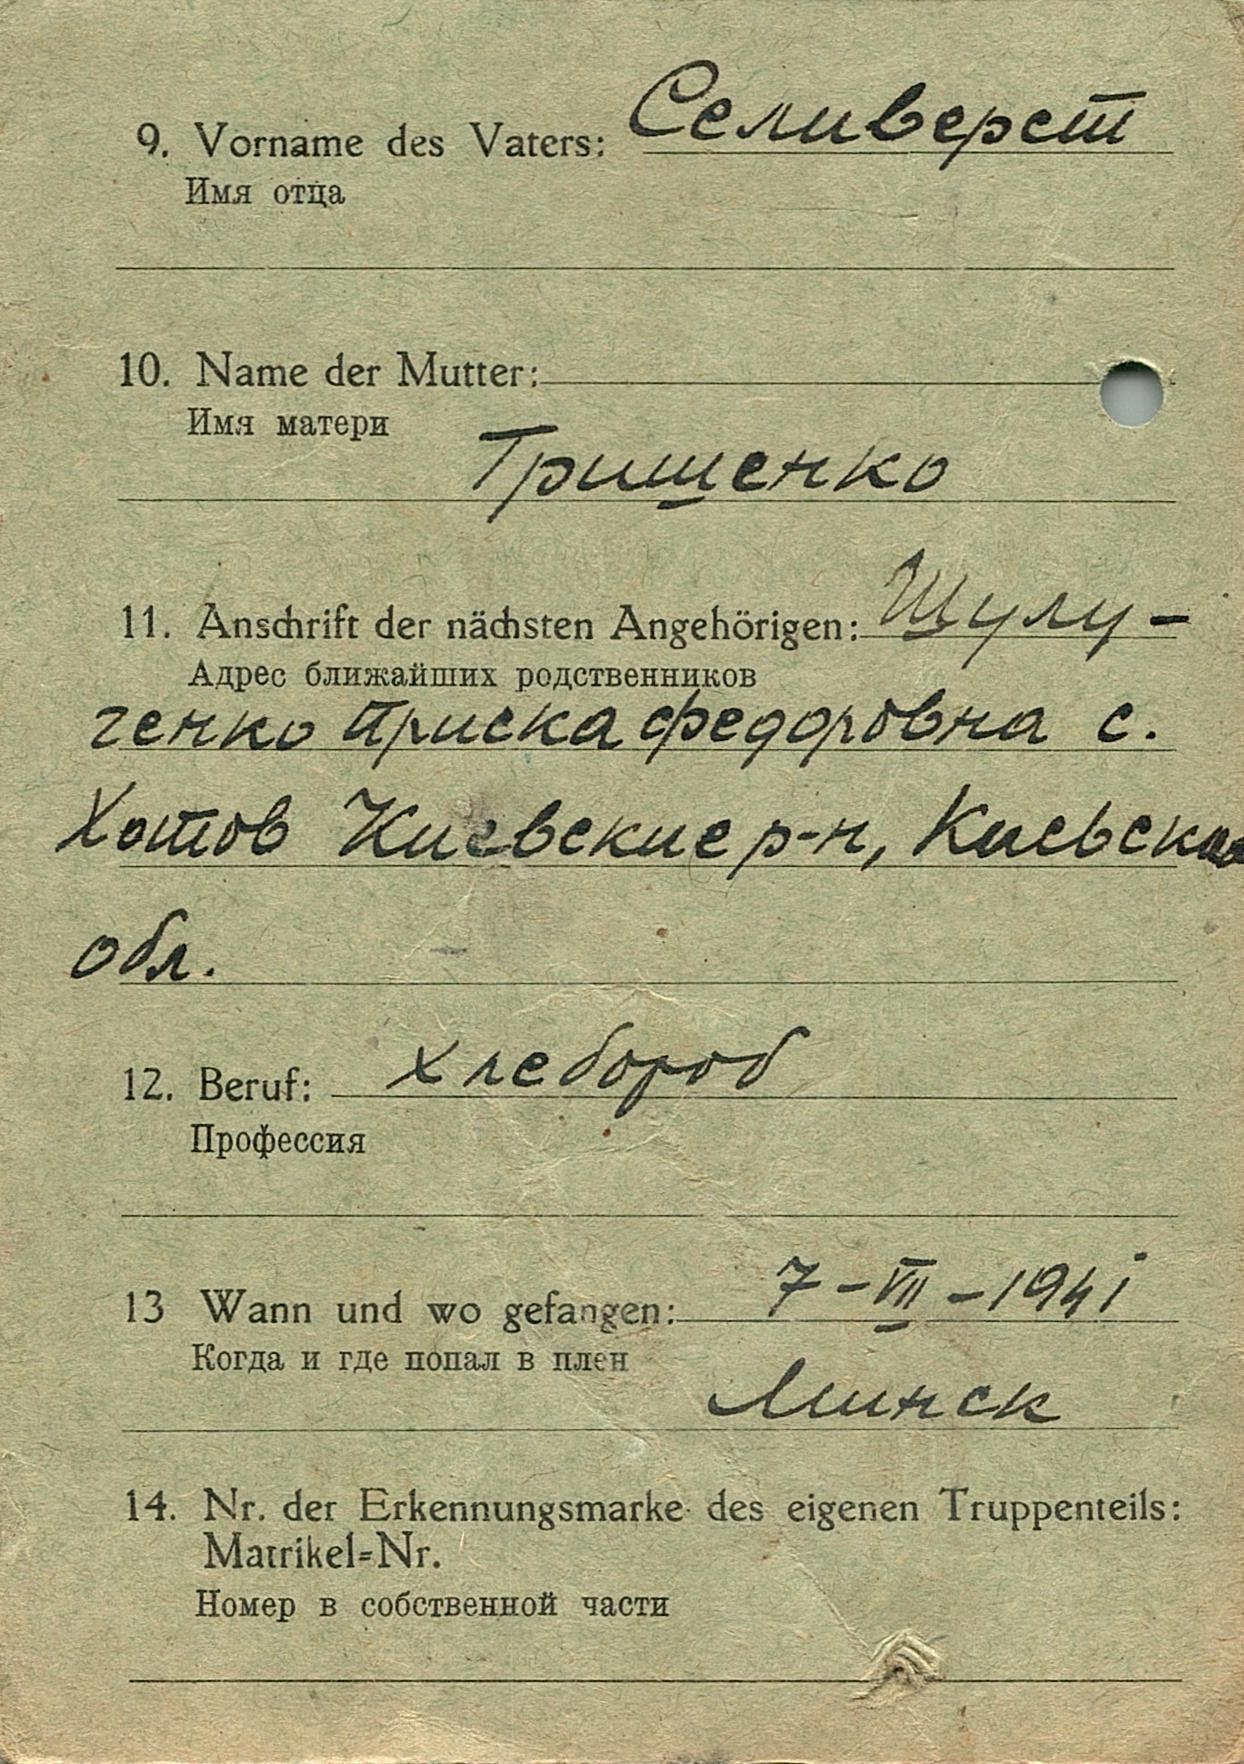 9. Vorname des Vaters: Селиверст
Имя отца
10. Name der Mutter:
Имя матери
Грищенко
11. Anschrift der nächsten Angehörigen: Шулу-
Адрес ближайших родственников
ченко Приска Федоровна с.
Хотов Киевские р-н, Киевская
обл.
12. Beruf: хлебороб
Профессия
13 Wann und wo gefangen: 7-VII-1941
Когда и где попал в плен
Минск
14. Nr. der Erkennungsmarke des eigenen Truppenteils:
Matrikel=Nr.
Номер в собственной части